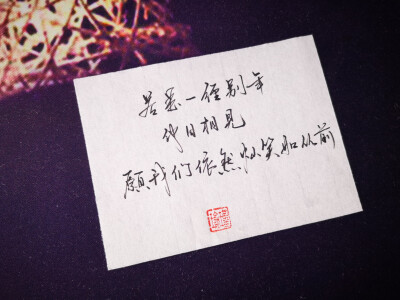 若是一經别年
他日相見
願我们依然灿笑如从前